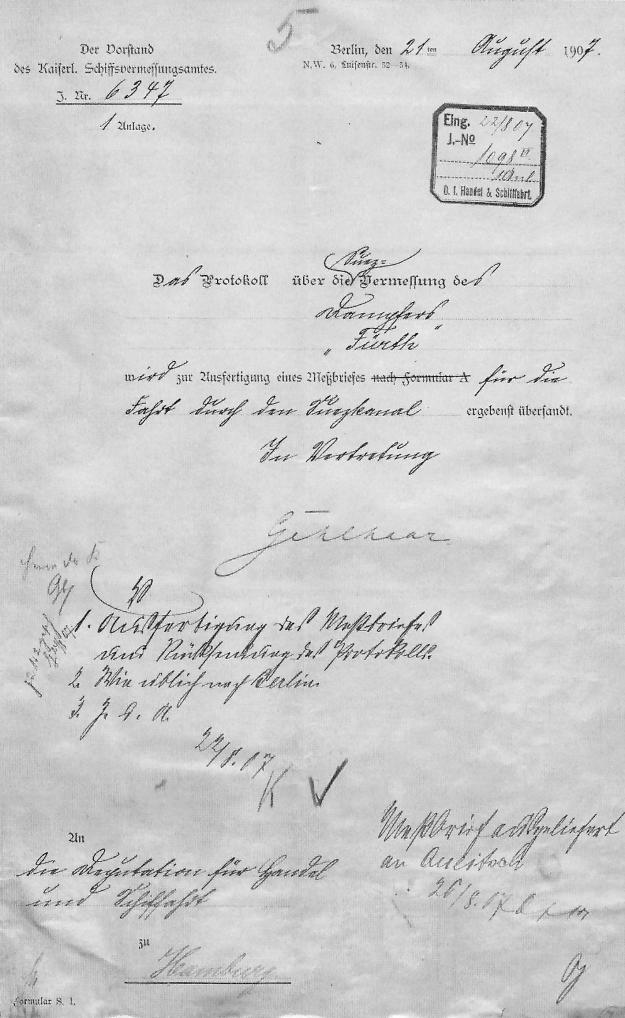 5
Der Vorstand
des Kaiserl. Schiffsvermessungsamtes.
J. Nr. 6347
1 Anlage.
Berlin, den 21ten August 1907.
N.W. 6, Luisenstr. 32–34.
Eing. 22/8 07
J.-No
1098
1 Anl.
D. f. Handel & Schifffahrt.
Suez-
Das Protokoll über die Vermessung des
Dampfers
„Fürth“
wird zur Ausfertigung eines Meßbriefes nach Formular A für die
Fahrt durch den Suezkanal ergebenst übersandt.
In Vertretung
Gehlhaar
1. Ausfertigung des Meßbriefes
und Rücksendung des Protokolls.
2. Wie üblich nach Berlin.
3. Z. d. A.
22/8.07
K
Meßbrief ausgeliefert
an
8.07
An
die Deputation für Handel
und Schiffahrt
zu
Hamburg
Formular S. 1.